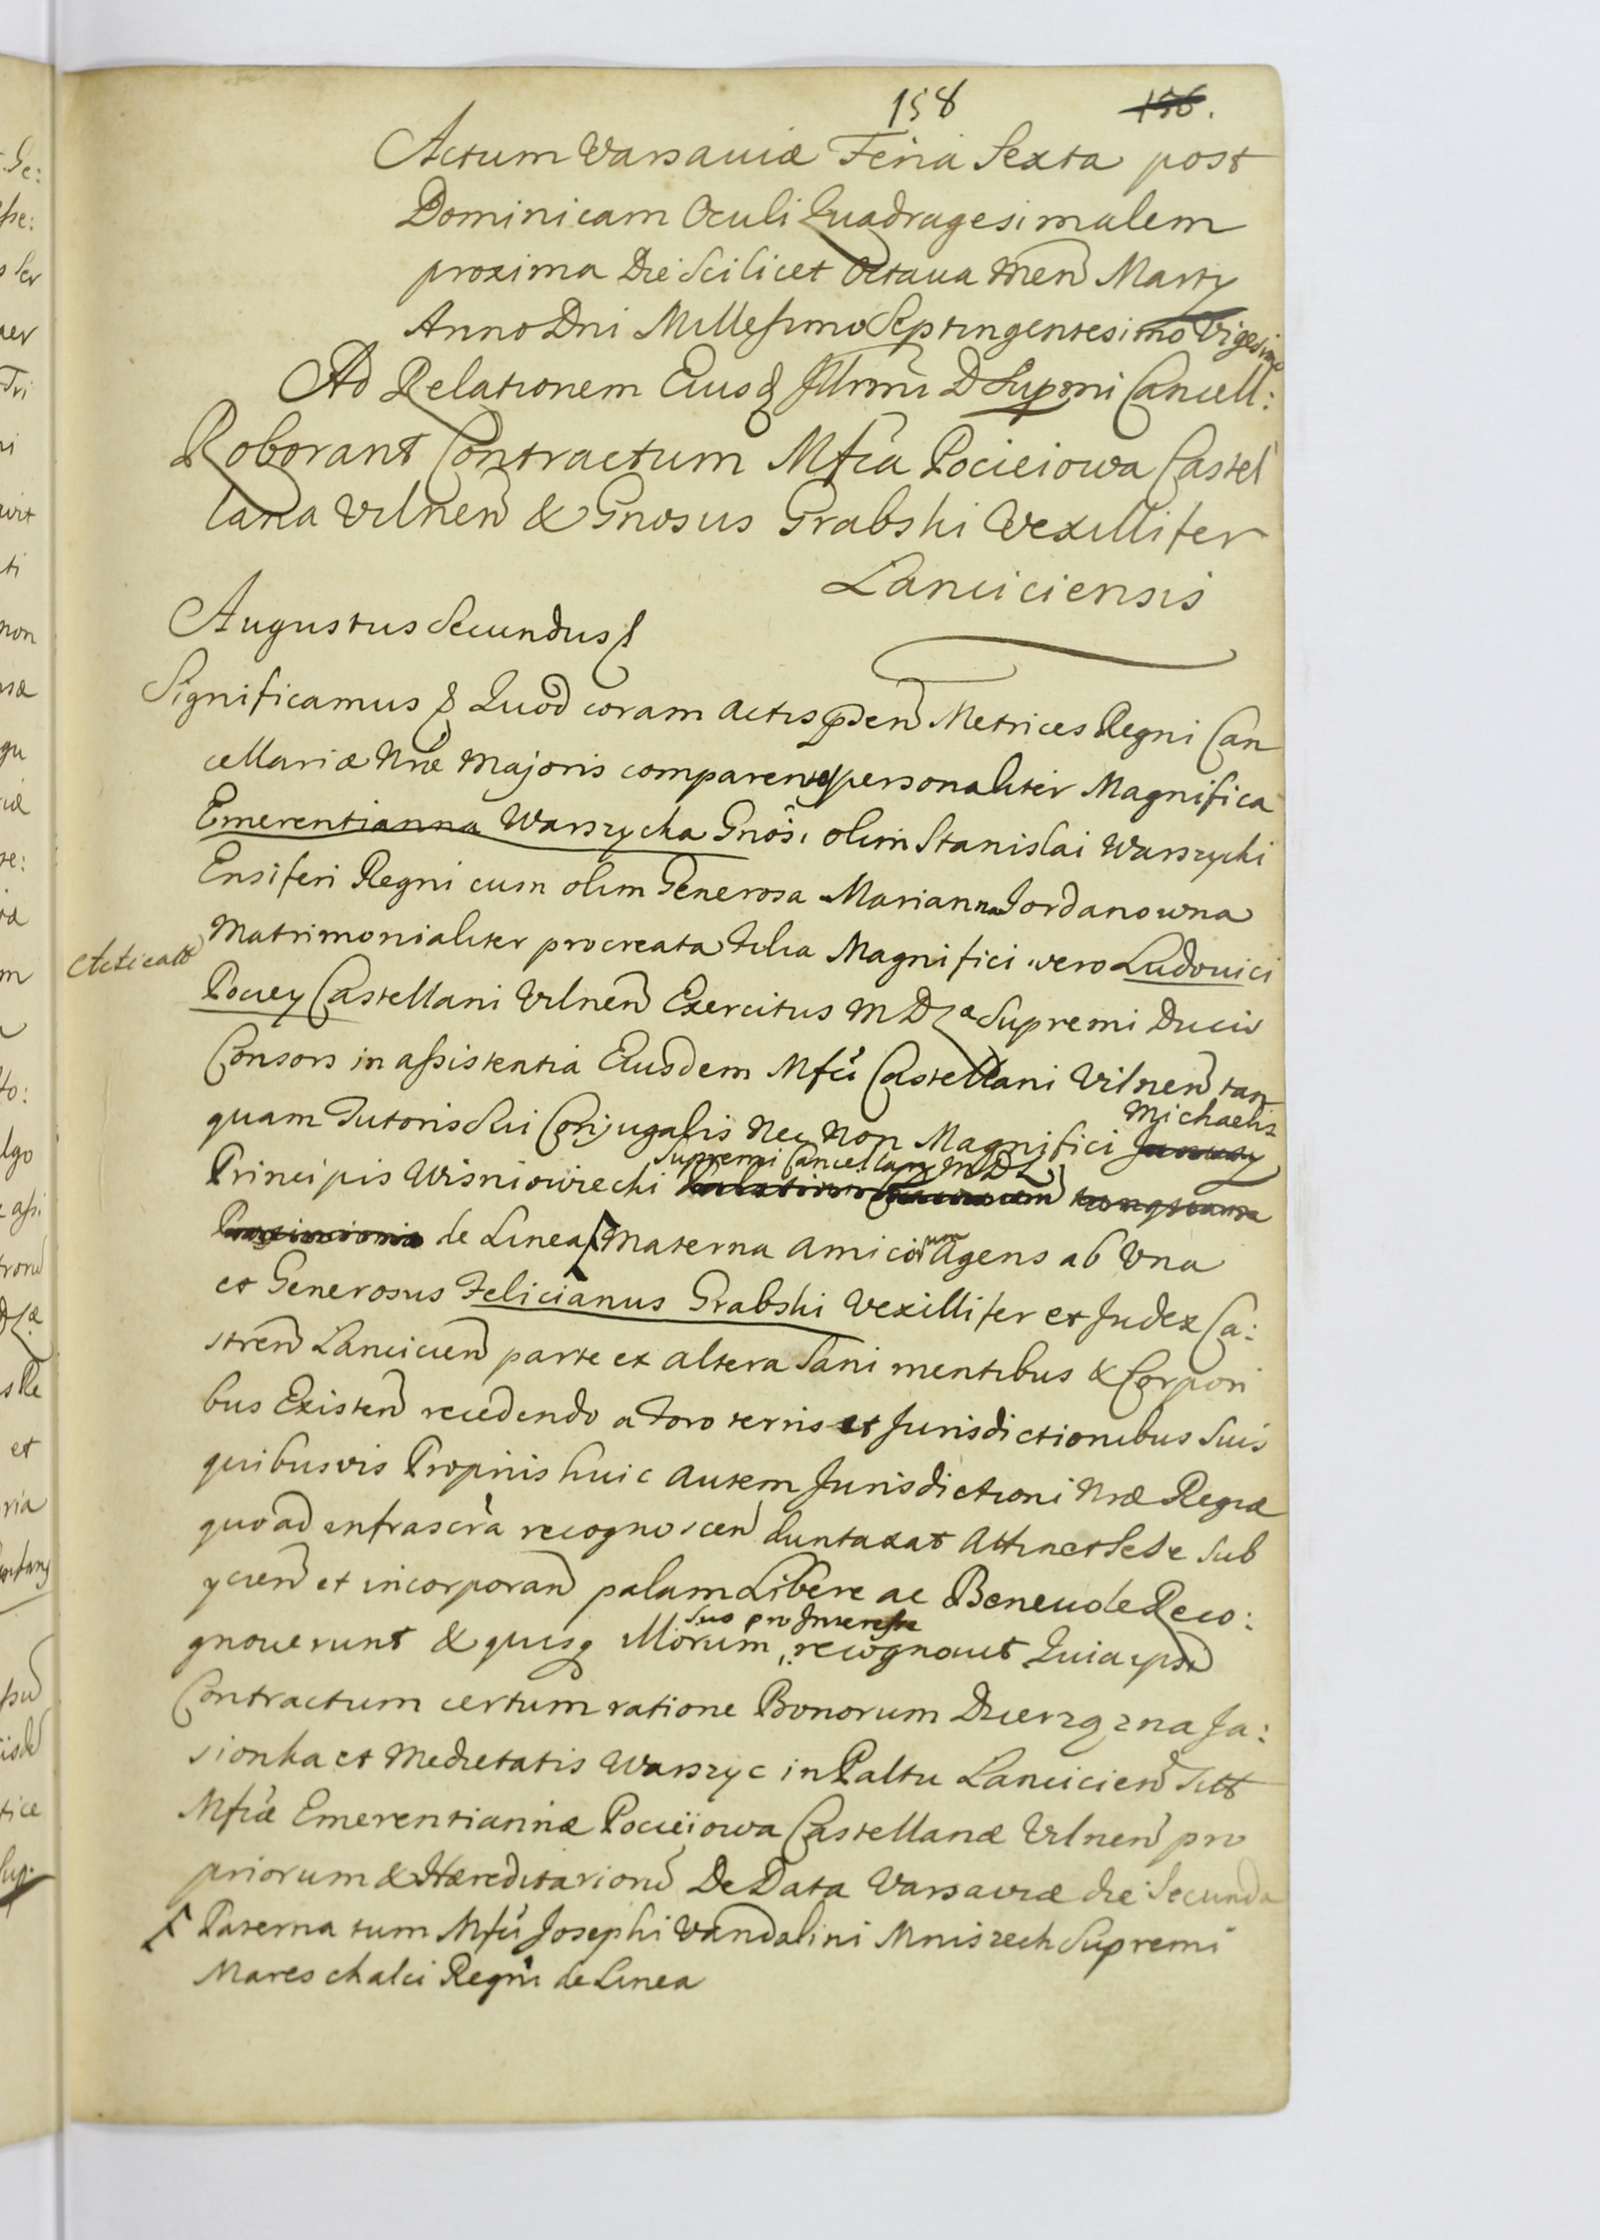 158 156.
Actum Varsaviæ Feria Sexta post
Dominicam Oculi Quadragesimalem
proxima Die Scilicet Octava Men Martÿ
Anno Dni Millesimo Septingentesimo Vigesimo
Ad Relationem Eiusd Illrmi D Supmi Cancell:
Roborant Contractum Mfca Pocieiowa Castel
lana Vilnen & Gnosus Grabski Vexillifer
Lanciciensis
Augustus Secundus
Significamus Quod coram Actis pden Metrices Regni Can
cellariæ Nræ Majoris comparen personaliter Magnifica
Emerentianna Warszycka Gnosi olim Stanislai Warszycki
Ensiferi Regni cum olim Generosa Marianna Jordanowna
Matrimonialiter procreata Filia Magnifici vero Ludovici
Pociey Castellani Vilnen Exercitus M D L Supremi Ducis
Consors in assistentia Eiusdem Mfci Castellani Vilnen tan
quam Tutoris Sui Conjugalis Nec non Magnifici Michaelis
Principis Wisniowiecki Supremi Cancellarÿ M D L
de Linea Materna Amicorum Agens ab Una
et Generosus Felicianus Grabski Vexillifer et Judex Ca:
stren Lancicien parte ex altera Sani mentibus & Corpori
bus Existen recedendo a Foro terris et Jurisdictionibus Suis
quibusvis Proprijs huic autem Jurisdictioni Nræ Regiæ
quo ad infrascra recognoscen duntaxat Attinet Sese Sub
ÿcien et incorporan palam Libere ac Benevole Reco:
gnoverunt & quisq Illorum, suo pro Interesse recognovit Quia ipsi
Contractum certum ratione Bonorum Dzierzązna Ja:
sionka et Medietatis Warszyc in Paltu Lancicien Sitt
Mfcæ Emerentiannæ Pocieiiowa Castellanæ Vilnen pro
priorum & Hæreditariorum De Data Varsaviæ die Secunda
Paterna tum Mfci Josephi Vandalini Mniszech Supremi
Mareschalci Regni de Linea